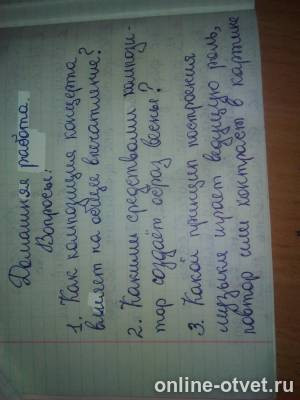 Домашняя работа.
Вопросы:
1. Как композиция концерта
влияет на общее впечатление?
2. Какими средствами компози-
тор создаёт образ весны?
3. Какой принцип построения
музыки играет ведущую роль,
повтор или контраст в картине
online-otvet.ru